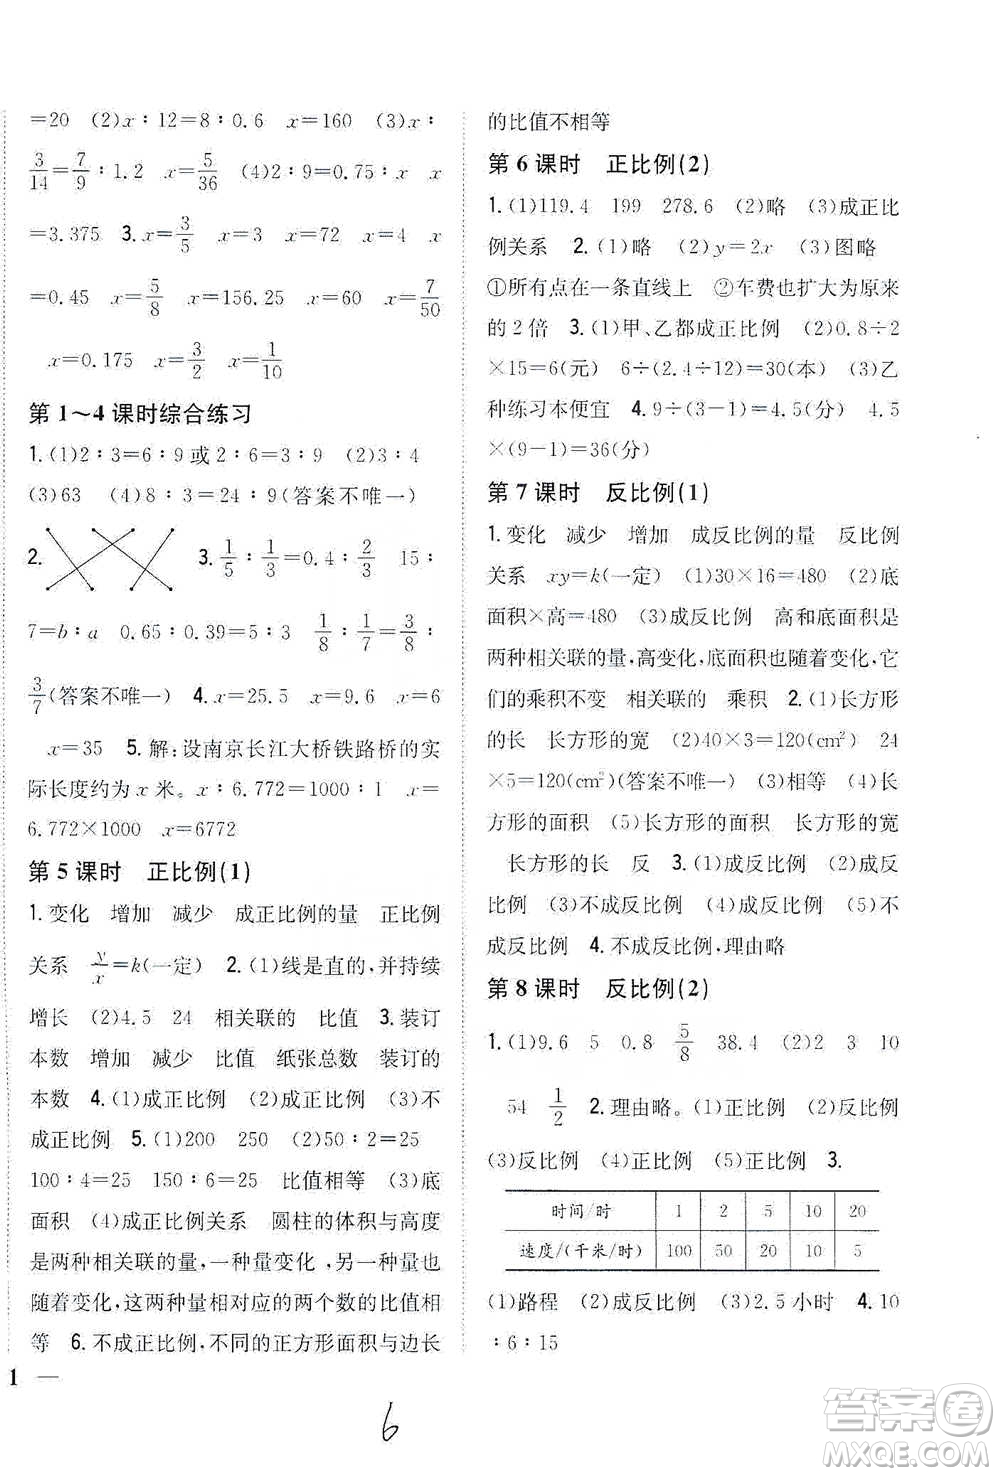 =20 (2)x∶12=8∶0.6 x=160 (3)x∶
3/14=7/9∶1.2 x=5/36 (4)2∶1/3=x∶9/16 x
=3.375 3.x=3/5 x=3 x=72 x=4 x
=0.45 x=5/8 x=156.25 x=60 x=7/50
x=0.175 x=3/2 x=1/10
第 1～4 课时综合练习
1.(1)2∶3=6∶9或2∶6=3∶9 (2)3∶4
(3)63 (4)8∶3=24∶9(答案不唯一)
2. 3.1/5∶1/3=0.4∶2/3 15∶
7=b∶a 0.65∶0.39=5∶3 1/8∶1/7=3/8∶
3/7(答案不唯一) 4.x=25.5 x=9.6 x=64
x=35 5.解:设南京长江大桥铁路桥的实
际长度约为 x 米。x∶6.772=1000∶1 x=
6.772×1000 x=6772
第 5 课时 正比例(1)
1.变化 增加 减少 成正比例的量 正比例
关系 y/x=k(一定) 2.(1)线是直的,并持续
增长 (2)4.5 24 相关联的 比值 3.装订
本数 增加 减少 比值 纸张总数 装订的
本数 4.(1)成正比例 (2)成正比例 (3)不
成正比例 5.(1)200 250 (2)50∶2=25
100∶4=25 150∶6=25 比值相等 (3)底
面积 (4)成正比例关系 圆柱的体积与高度
是两种相关联的量,一种量变化,另一种量也
随着变化,这两种量相对应的两个数的比值相
等 6.不成正比例,不同的正方形面积与边长
的比值不相等
第 6 课时 正比例(2)
1.(1)119.4 199 278.6 (2)略 (3)成正比
例关系 2.(1)略 (2)y=2x (3)图略
①所有点在一条直线上 ②车费也扩大为原来
的 2 倍 3.(1)甲、乙都成正比例 (2)0.8÷2
×15=6(元) 6÷(2.4÷12)=30(本) (3)乙
种练习本便宜 4.9÷(3-1)=4.5(分) 4.5
×(9-1)=36(分)
第 7 课时 反比例(1)
1.变化 减少 增加 成反比例的量 反比例
关系 xy=k(一定) (1)30×16=480 (2)底
面积×高=480 (3)成反比例 高和底面积是
两种相关联的量,高变化,底面积也随着变化,它
们的乘积不变 相关联的 乘积 2.(1)长方形
的长 长方形的宽 (2)40×3=120(cm²) 24
×5=120(cm²)(答案不唯一) (3)相等 (4)长
方形的面积 (5)长方形的面积 长方形的宽
长方形的长 反 3.(1)成反比例 (2)成反
比例 (3)不成反比例 (4)成反比例 (5)不
成反比例 4.不成反比例,理由略
第 8 课时 反比例(2)
1.(1)9.6 5 0.8 5/8 38.4 (2)2 3 10
54 1/2 2.理由略。(1)正比例 (2)反比例
(3)反比例 (4)正比例 (5)正比例 3.
时间/时 1 2 5 10 20
速度/(千米/时) 100 50 20 10 5
(1)路程 (2)成反比例 (3)2.5 小时 4.10
∶6∶15
1 —
6
答案卷
MXQE.COM